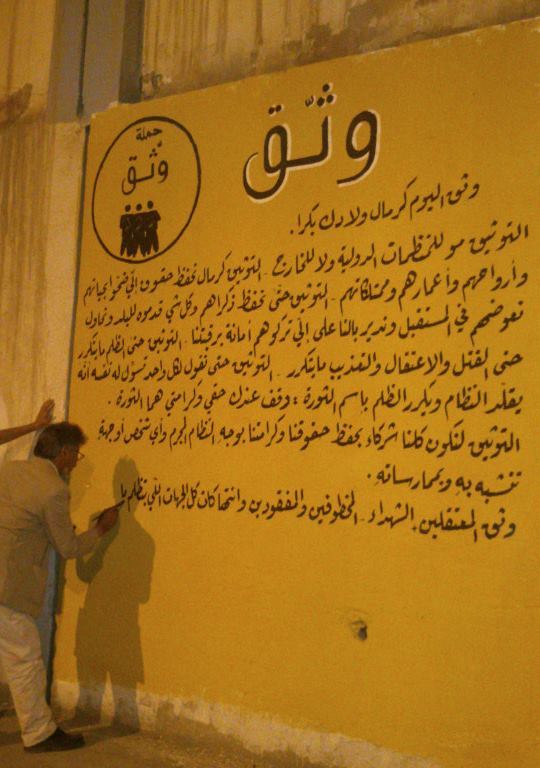 حملة
وثّق
وثّق
وثق اليوم كرمال ولادك بكرا.
التوثيق مو للمنظمات الدولية ولا للخارج - التوثيق كرمال نحفظ حقوق إلّي ضحّوا بحياتهم
وأرواحهم وأعمارهم وممتلكاتهم - التوثيق حتّى نحفظ ذكراهم وكل شي قدموه للبلد ونحاول
نعوضهم في المستقبل وندير بالنا على إلّي تركوهم أمانة برقبتنا - التوثيق حتى الظلم ما يتكرر
حتى القتل والاعتقال والتعذيب ما يتكرر - التوثيق حتى نقول لكل واحد تسوّل له نفسه انه
يقلّد النظام ويكرر الظلم باسم الثورة : وقف عندك حقي وكرامتي هما الثورة .
التوثيق لنكون كلنا شركاء بحفظ حقوقنا وكرامتنا بوجه النظام المجرم وأي شخص أو جهة
تتشبه به وبممارساته .
وثق المعتقلين - الشهداء - المخطوفين والمفقودين وانتهاكات كل الجهات اللّي بتظلم